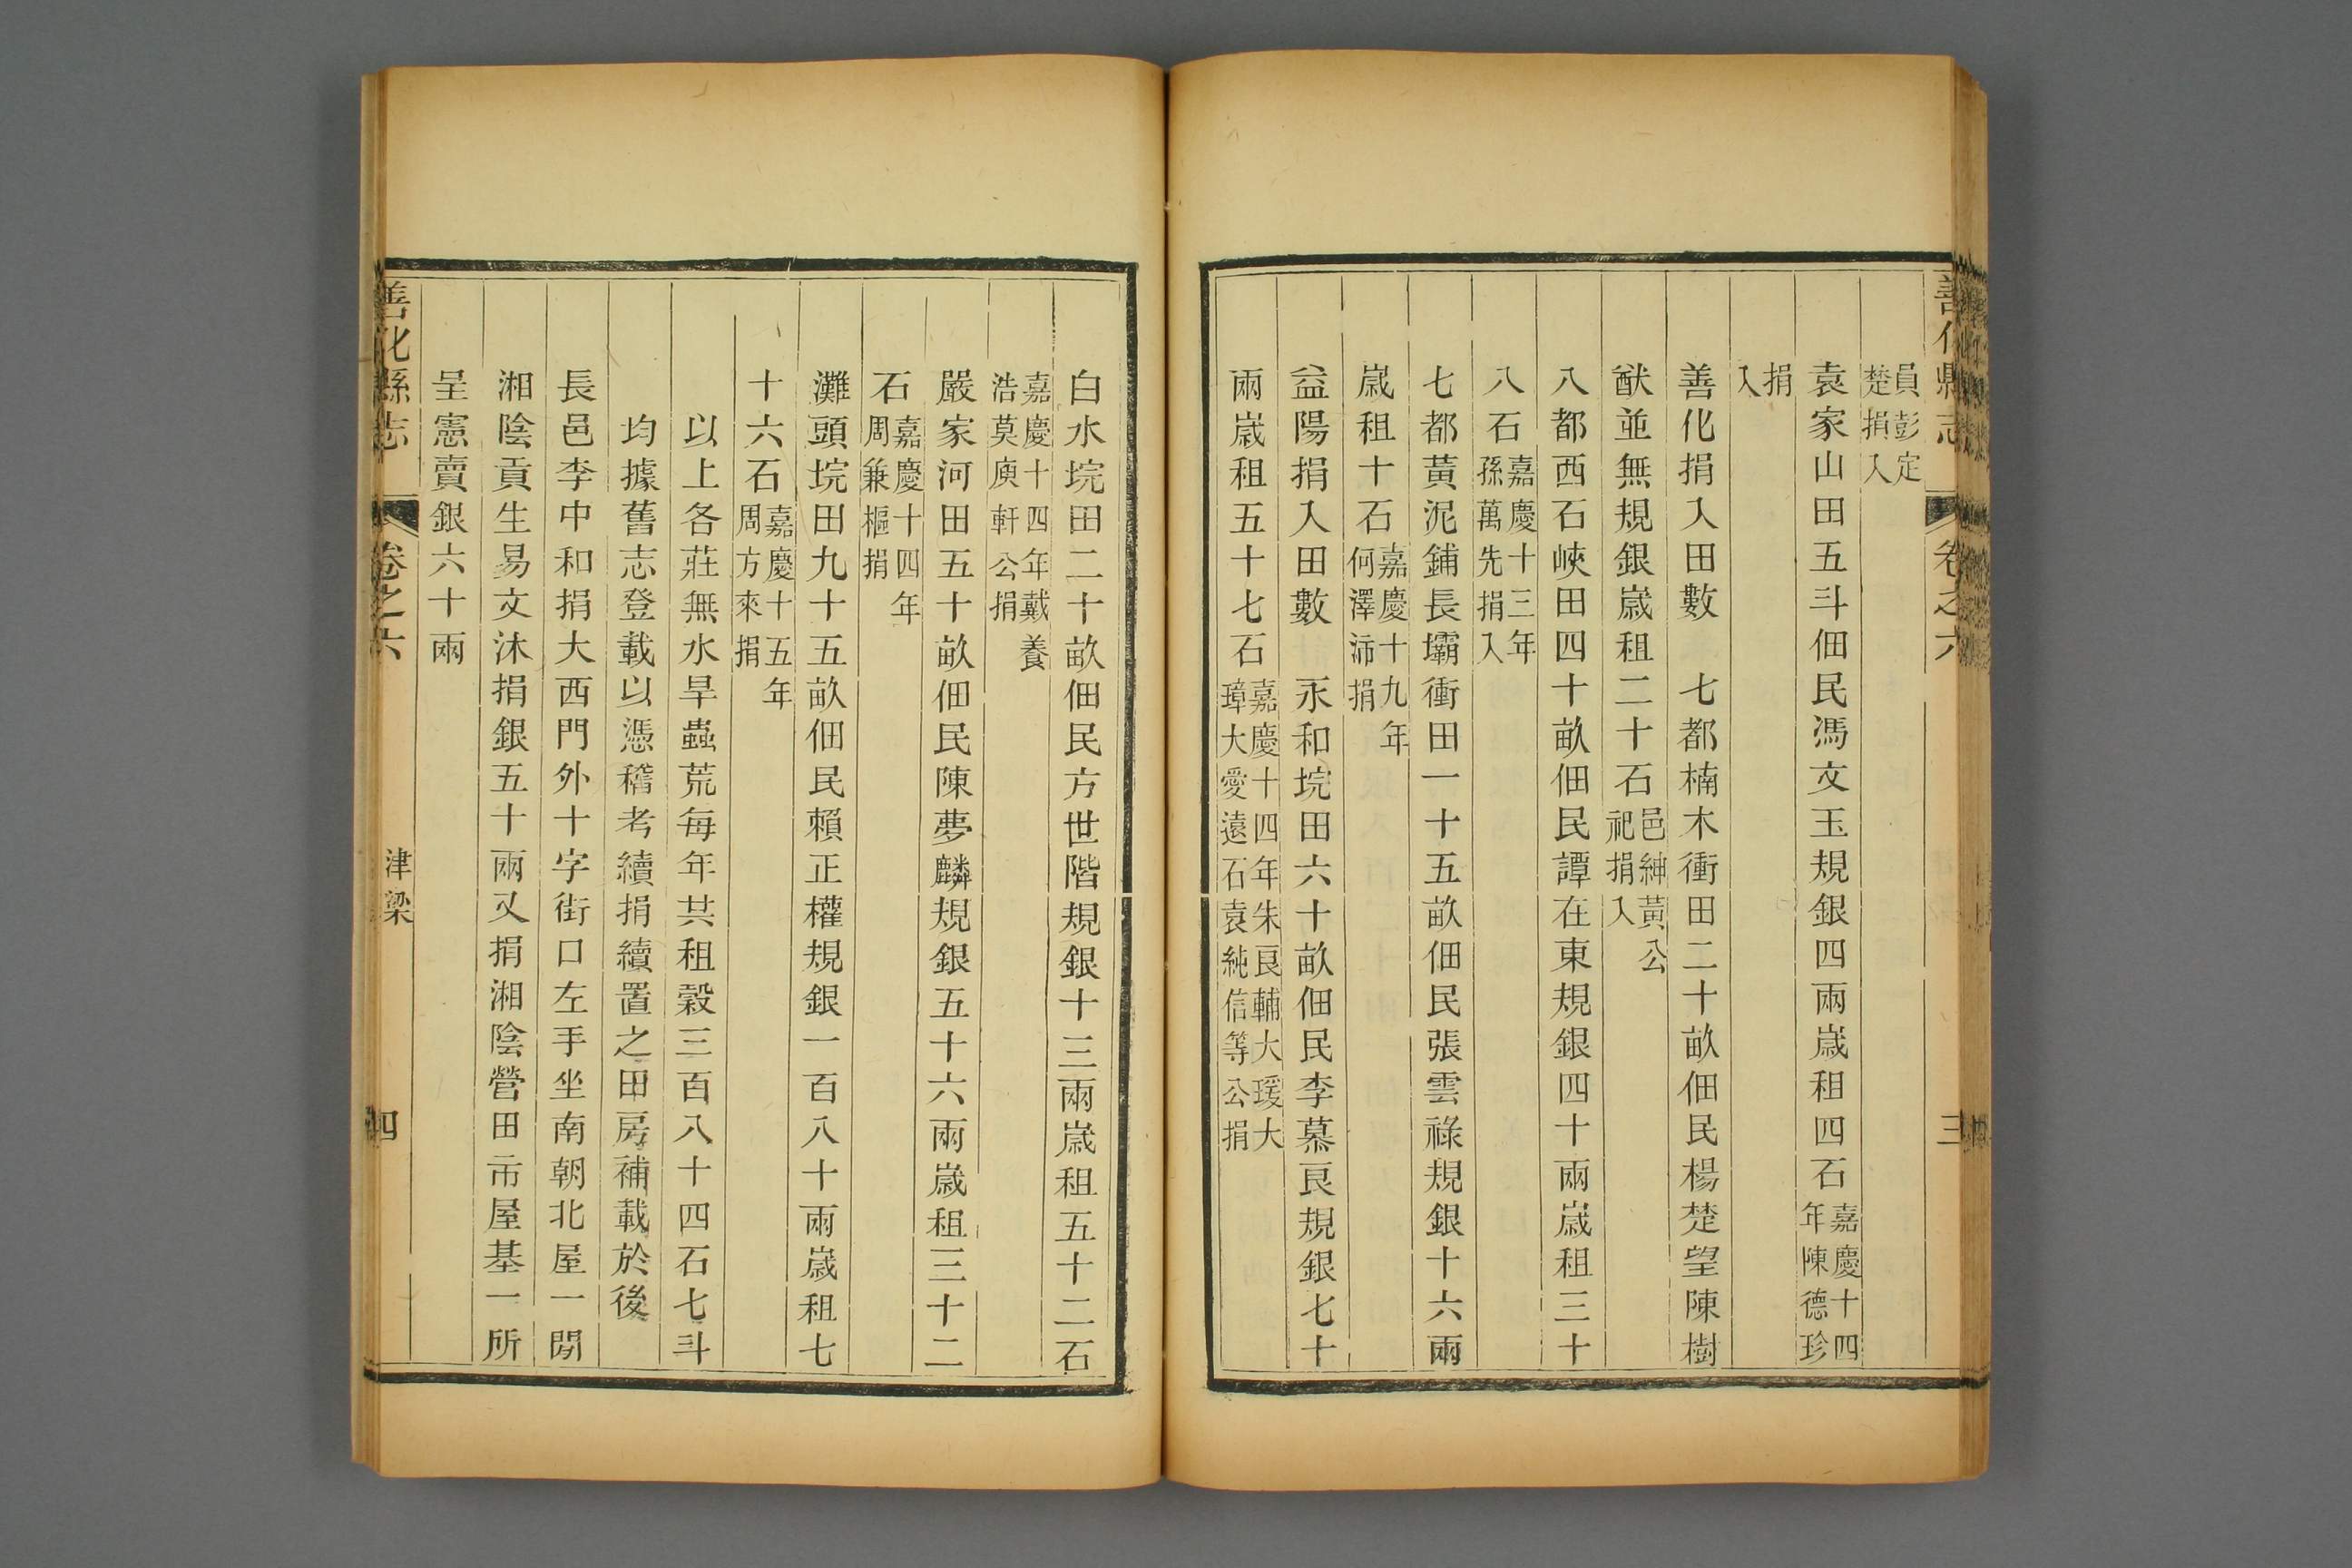 善化縣志 卷之六 三
員彭定楚捐入
袁家山田五斗佃民馮文玉規銀四兩歲租四石嘉慶十四年陳德珍
捐入
善化捐入田數 七都楠木衝田二十畝佃民楊楚望陳樹
猷並無規銀歲租二十石邑紳黃公祀捐入
八都西石峽田四十畝佃民譚在東規銀四十兩歲租三十
八石嘉慶十三年孫萬先捐入
七都黃泥鋪長壩衝田一十五畝佃民張雲祿規銀十六兩
歲租十石嘉慶十九年何澤沛捐
益陽捐入田數 永和垸田六十畝佃民李慕良規銀七十
兩歲租五十七石嘉慶十四年朱良輔大瑗大璋大愛遠石袁純信等公捐
白水垸田二十畝佃民方世階規銀十三兩歲租五十二石
嘉慶十四年戴養浩莫庾軒公捐
嚴家河田五十畝佃民陳夢麟規銀五十六兩歲租三十二
石嘉慶十四年周兼樞捐
灘頭垸田九十五畝佃民賴正權規銀一百八十兩歲租七
十六石嘉慶十五年周方來捐
以上各莊無水旱蟲荒每年共租穀三百八十四石七斗
均據舊志登載以憑稽考續捐續置之田房補載於後
長邑李中和捐大西門外十字街口左手坐南朝北屋一間
湘陰貢生易文沐捐銀五十兩又捐湘陰營田市屋基一所
呈憲賣銀六十兩
善化縣志 卷之六 津梁 四